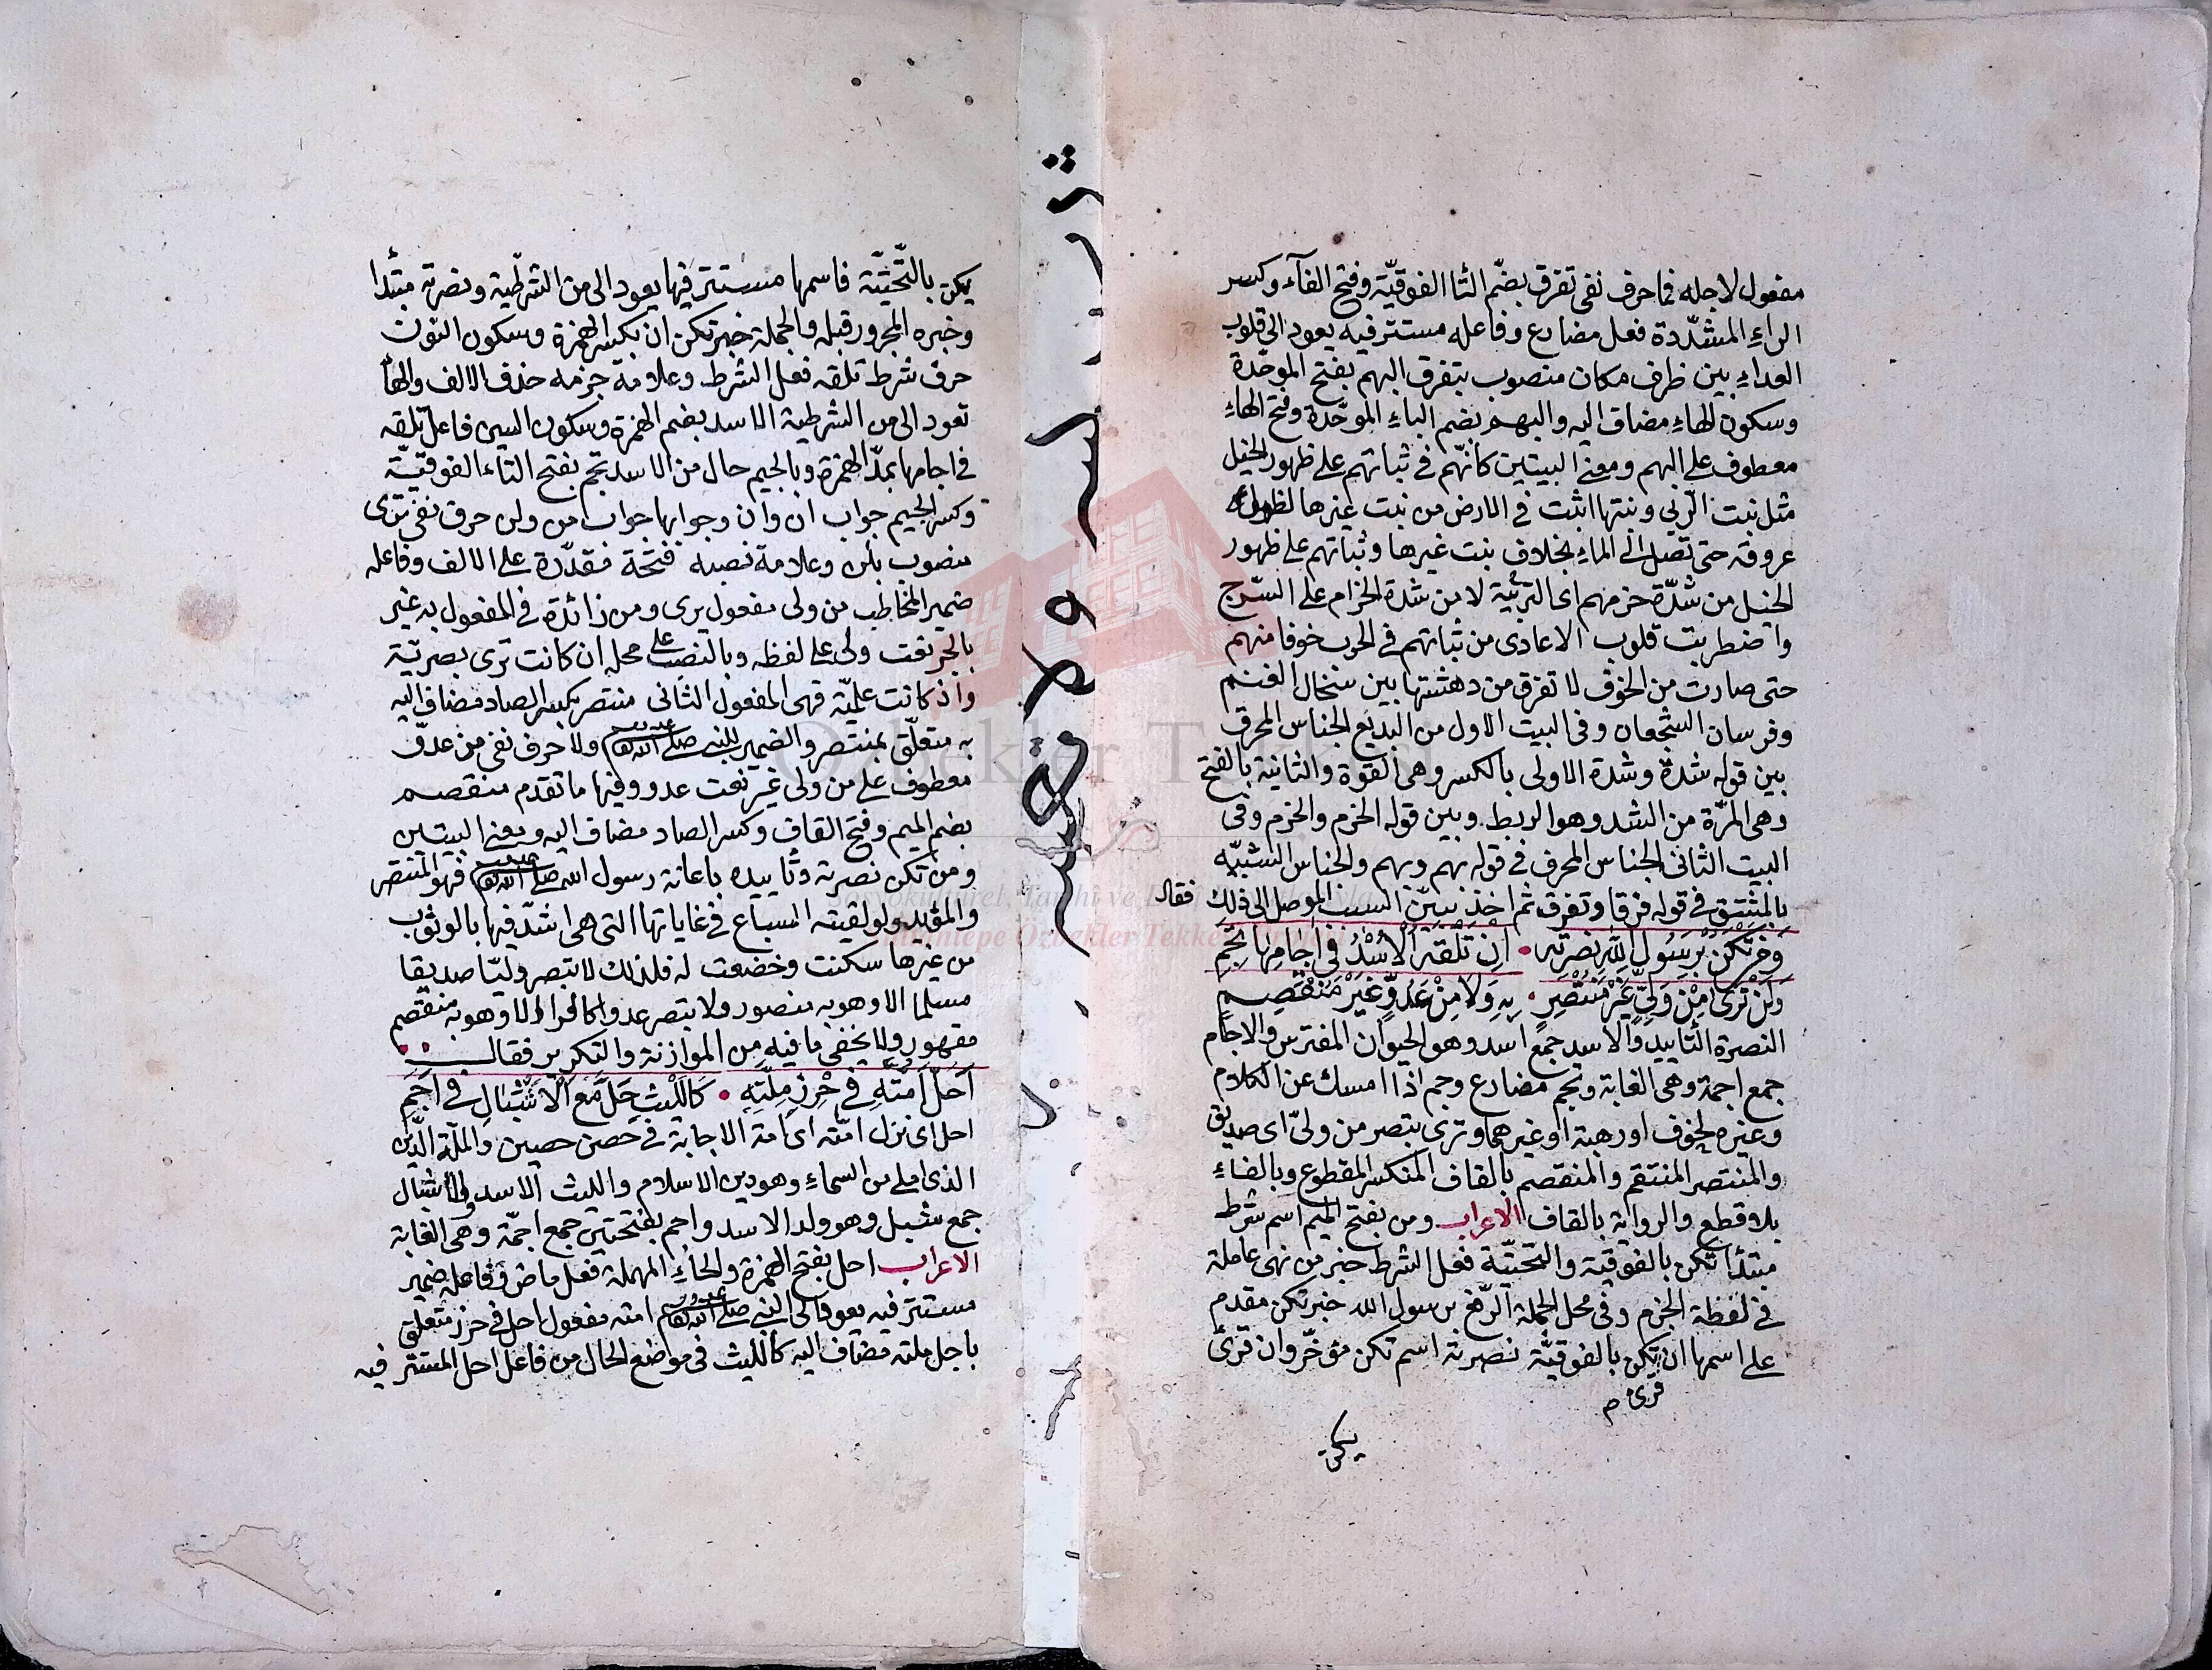 مفعول لاجله فما حرف نفى تفرق بضّم التا الفوقيّة وفتح الفآء وكسر
الراءِ المشدّدة فعل مضارع وفاعله مستتر فيه يعود الى قلوب
العداءِ بين ظرف مكان منصوب بتفرق البهم بفتح الموحّدة
وسكون الهاءِ مضاف اليه والبهم بضم الباءِ الموحّدة وفتح الهاءِ
معطوف على البهم ومعنى البيتين كأنهّم فى ثباتهم على ظهور الخيل
مثل نبت الرّبى ونبتها اثبت فى الارض من نبت غيرها لطول
عروقه حتى تصل الى الماءِ بخلاف نبت غيرها وثباتهم على ظهور
الخيل من شدّة حزمهم اى التربّية لا من شدة الحزام على السّرج
واضطربت قلوب الاعادى من ثباتهم فى الحرب خوفا منهم
حتى صارت من الخوف لا تفرق من دهشتها بين سنخال الغنم
وفرسان الشجعان وفى البيت الاول من البديع الجناس المحرف
بين قوله شدة وشدة الاولى بالكسر وهى القوة والثانية بالفتح
وهى المرّة من الشد وهو الربط وبين قوله الحزم والحزم وفى
البيت الثانى الجناس المحرف فى قوله بهم وبهم والجناس الشبيّه
بالمشتق فى قوله فرقا وتفرق ثم اخذ يبيّن السبب الموصل الى ذلك فقال
وَمَنْ تَكُنْ بِرَسُولِ اللّٰهِ نصْرَتُه • اِنْ تَلْقَهُ الْاُسْدُ فى اٰجَامِهَا تَجِمِ
وَلَنْ تَرَى مِنْ وَلِىٍّ غَيْرِ مُنْتَصِرٍ • بِهِ وَلَا مِنْ عَدُوٍّ غَيْرِ مُنْقَصِمِ
النصرة التأييد والاسد جمع اسد وهو الحيوان المفترس والاجام
جمع اجمة وهى الغابة وتجم مضارع وجم اذا امسك عن الكلام
وغيره لخوف اورهبة اوغيرهما وترى بتصر من ولىّ اى صديق
والمنتصر المنتقم والمنقصم بالقاف المنكسر المقطوع وبالفاءِ
بلا قطع والرواية بالقاف الاعراب ومن بفتح الميم اسم شرط
مبتدأ تكن بالفوقية والتحتيّة فعل الشرط خبر من نهى عاملة
فى لفظة الجزم وفى محل الجملة الرّفع برسول الله خبر تكن مقدم
على اسمها ان تكن بالفوقيّة نصرته اسم تكن مؤخّر وان قرئ
قرئ م
يكن
يكن بالتّحتيّة فاسمها مستتر فيها يعود الى من الشرطيّة ونصرته مبتدا
وخبره المجرور قبله والجملة خبر تكن ان بكسر الهمزة وسكون النون
حرف شرط تلقه فعل الشرط وعلامة جزمه حذف الالف والهأ
تعود الى من الشرطية الاسد بضم الهمزة وسكون السين فاعل تلقه
فى اجامها بمدّ الهمزة وبالجيم حال من الاسد تجم بفتح التاء الفوقيّة
وكسر الجيم جواب ان وان وجوابها جواب من ولن حرف نفى ترى
منصوب بلن وعلامة نصبه فتحة مقدّرة على الالف وفاعله
ضمير المخاطب من ولى مفعول يرى ومن زائدة فى المفعول به غير
بالجر نعت ولى على لفظه وبالنصب على محله ان كانت ترى بصريّة
وان كانت علميّة فهى المفعول الثانى منتصر بكسر الصاد مضاف اليه
به متعلّق بمنتصر والضمير للنبى صلى الله عليه وسلم ولا حرف نفى من عدوّ
معطوف على من ولى غير نعت عدو وفيها ما تقدم منقصم
بضم الميم وفتح القاف وكسر الصاد مضاف اليه ومعنى البيتين
ومن تكن نصرته وتأييده باعانة رسول الله صلى الله عليه وسلم فهو المنتصر
والمؤيد ولو لقيته السباع فى غاياتها التى هى اشدّ فيها بالوثوب
من غيرها سكنت وخضعت له فلذلك لا تبصر وليّا صديقا
مسلما الا وهو به منصور ولا تبصر عدوا كافرا الا وهو به منقصم
مقهور ولا يخفى ما فيه من الموازنة والتكرير فقال
اَحَلَّ اُمَّتَهُ فى حِرْزِ مِلَّتِهِ • كَاللَّيْثِ حَلَّ مَعَ الْاَشْبَالِ فى اَجَمِ
احل اى نزل امّته اى امة الاجابة فى حصن حصين والملّة الدّين
الذى املى من السماءِ وهو دين الاسلام والليث الاسد والاشبال
جمع شبل وهو ولد الاسد واجم بفتحتين جمع اجمّة وهى الغابة
الاعراب احل بفتح الهمزة والحاءِ المهملة فعل ماض وفاعله ضمير
مستتر فيه يعود الى النبى صلى الله عليه وسلم امته مفعول احل فى حرز متعلق
باحل ملته مضاف اليه كالليث فى مواضع الحال من فاعل احل المستتر فيه